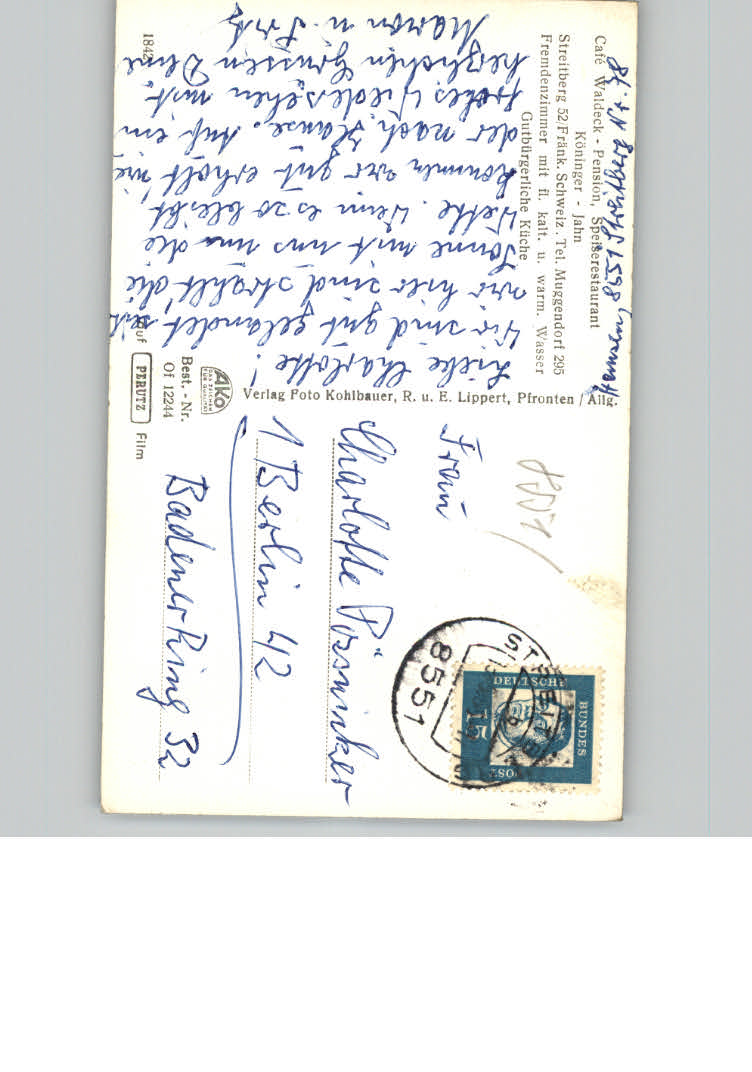 Café Waldeck - Pension, Speiserestaurant
Köninger - Jahn
Streitberg 52/Fränk. Schweiz. Tel. Muggendorf 295
Fremdenzimmer mit fl. kalt. u. warm. Wasser
Gutbürgerliche Küche
8551
Liebe Charlotte!
Wir sind gut gelandet seit
wir hier sind strahlt die
Sonne mit uns um die
Wette. Wenn es so bleibt
kommen wir gut erholt wie
der nach Hause. Auf ein
frohes Wiedersehen mit
herzlichen Grüssen Deine
Marion u. Fritz
1842
Verlag Foto Kohlbauer, R. u. E. Lippert, Pfronten / Allg.
AKO
DAS ZEICHEN
FÜR QUALITÄT
Best. - Nr.
Of 12244
auf PERUTZ Film
8551
Frau
Charlotte
1 Berlin 42
Badener Ring 32
STREITBERG
8551
DEUTSCHE
BUNDES
POST
15